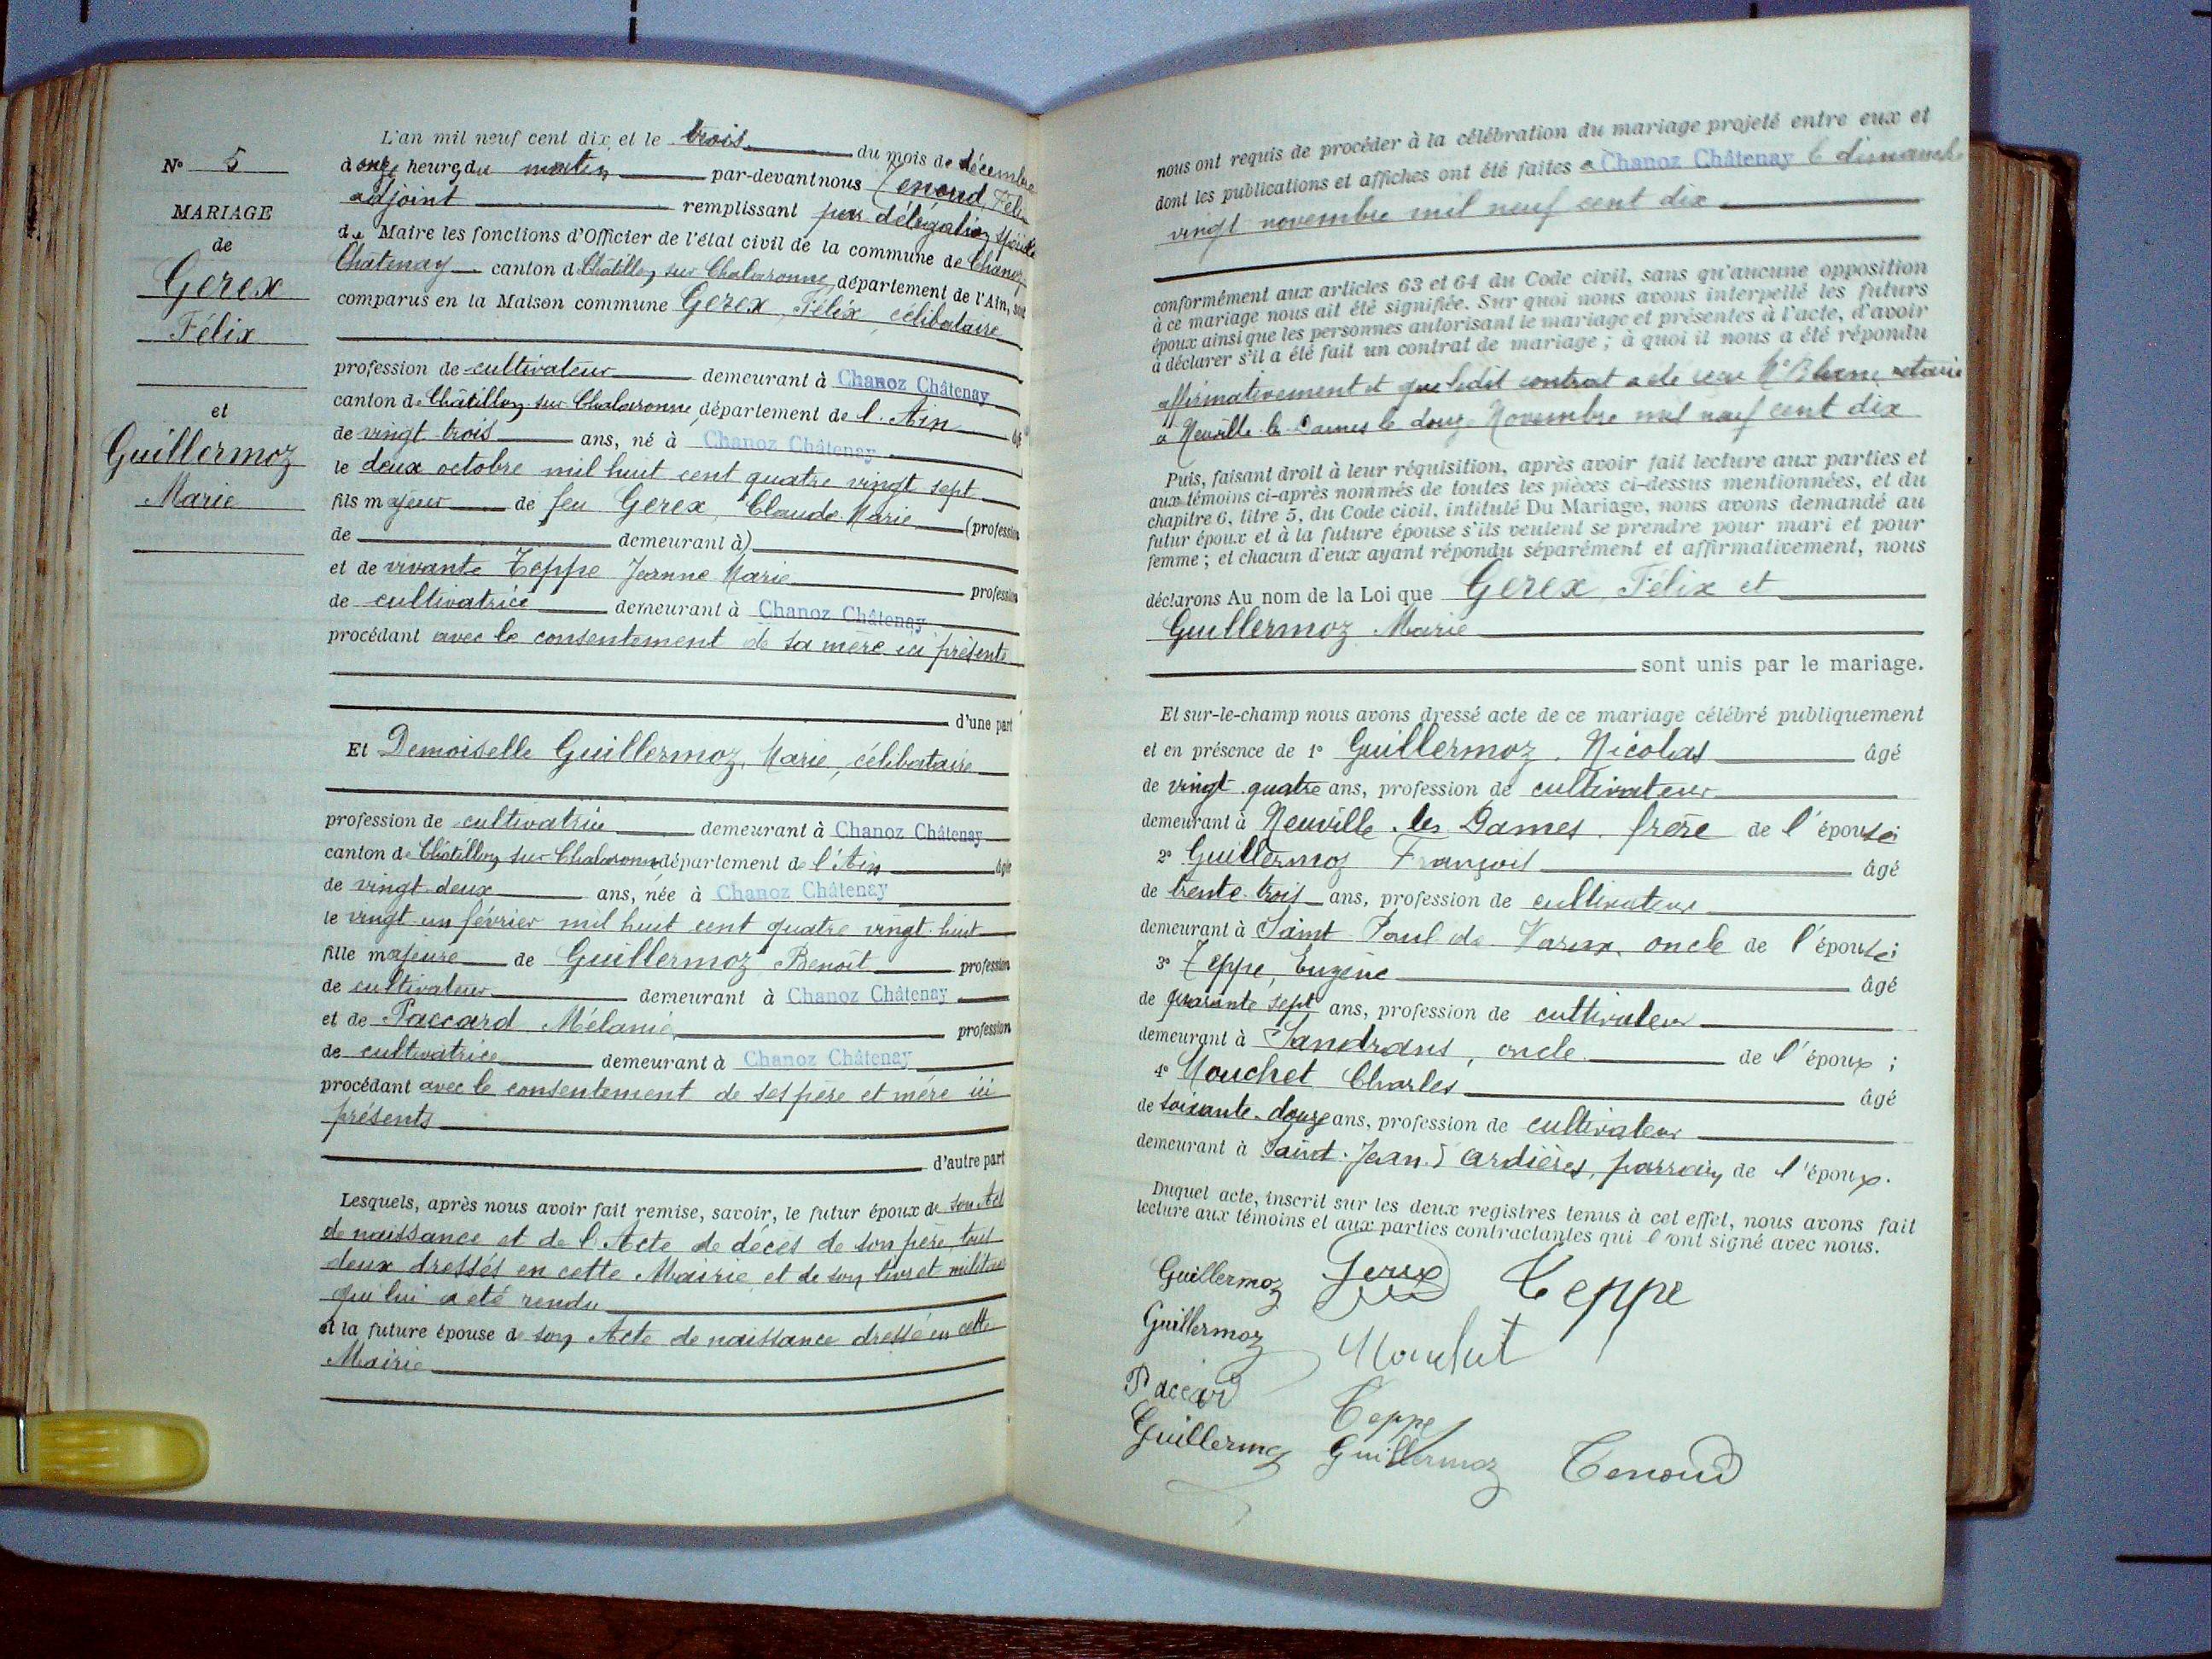 N° 5
MARIAGE
de
Gerex
Félix
et
Guillermoz
Marie
L'an mil neuf cent dix, et le trois du mois de décembre
à onze heures du matin par-devant nous Tenoud, Félix
adjoint remplissant par délégation spéciale
du Maire les fonctions d'Officier de l'état civil de la commune de Chanoz
Chatenay canton de Châtillon sur Chalaronne, département de l'Ain, sont
comparus en la Maison commune Gerex, Félix, célibataire
profession de cultivateur demeurant à Chanoz Châtenay
canton de Châtillon sur Chalaronne, département de l'Ain âgé
de vingt trois ans, né à Chanoz Châtenay
le deux octobre mil huit cent quatre vingt sept
fils majeur de feu Gerex, Claude Marie (profession
de demeurant à)
et de vivante Teppe Jeanne Marie profession
de cultivatrice demeurant à Chanoz Châtenay
procédant avec le consentement de sa mère ici présente
d'une part
Et Demoiselle Guillermoz, Marie, célibataire
profession de cultivatrice demeurant à Chanoz Châtenay
canton de Châtillon sur Chalaronne département de l'Ain âgée
de vingt-deux ans, née à Chanoz Châtenay
le vingt-un février mil huit cent quatre vingt-huit
fille majeure de Guillermoz Benoît profession
de cultivateur demeurant à Chanoz Châtenay
et de Paccard Mélanie profession
de cultivatrice demeurant à Chanoz Châtenay
procédant avec le consentement de ses père et mère ici
présents
d'autre part
Lesquels, après nous avoir fait remise, savoir, le futur époux de son Acte
de naissance et de l'Acte de décès de son père, tous
deux dressés en cette Mairie et de son livret militaire
qui lui a été rendu
et la future épouse de son Acte de naissance dressé en cette
Mairie
nous ont requis de procéder à la célébration du mariage projeté entre eux et
dont les publications et affiches ont été faites à Chanoz Châtenay le dimanche
vingt novembre mil neuf cent dix
conformément aux articles 63 et 64 du Code civil, sans qu'aucune opposition
à ce mariage nous ait été signifiée. Sur quoi nous avons interpellé les futurs
époux ainsi que les personnes autorisant le mariage et présentes à l'acte, d'avoir
à déclarer s'il a été fait un contrat de mariage ; à quoi il nous a été répondu
affirmativement et que ledit contrat a été reçu Me notaire
à Neuville les Dames le douze Novembre mil neuf cent dix
Puis, faisant droit à leur réquisition, après avoir fait lecture aux parties et
aux témoins ci-après nommés de toutes les pièces ci-dessus mentionnées, et du
chapitre 6, titre 5, du Code civil, intitulé Du Mariage, nous avons demandé au
futur époux et à la future épouse s'ils veulent se prendre pour mari et pour
femme ; et chacun d'eux ayant répondu séparément et affirmativement, nous
déclarons Au nom de la Loi que Gerex, Félix et
Guillermoz Marie
sont unis par le mariage.
Et sur-le-champ nous avons dressé acte de ce mariage célébré publiquement
et en présence de 1° Guillermoz, Nicolas âgé
de vingt quatre ans, profession de cultivateur
demeurant à Neuville-les-Dames, frère de l'épouse;
2° Guillermoz François âgé
de trente-trois ans, profession de cultivateur
demeurant à Saint Paul de Varax, oncle de l'épouse;
3° Teppe, Eugène âgé
de quarante sept ans, profession de cultivateur
demeurant à Sandrans, oncle de l'époux ;
4° Mouchet Charles âgé
de soixante-douze ans, profession de cultivateur
demeurant à Saint-Jean d'Ardières, parrain, de l'époux.
Duquel acte, inscrit sur les deux registres tenus à cet effet, nous avons fait
lecture aux témoins et aux parties contractantes qui l'ont signé avec nous.
Guillermoz Gerex Teppe
Guillermoz Mouchet
Paccard Teppe
Guillermoz Guillermoz Tenoud